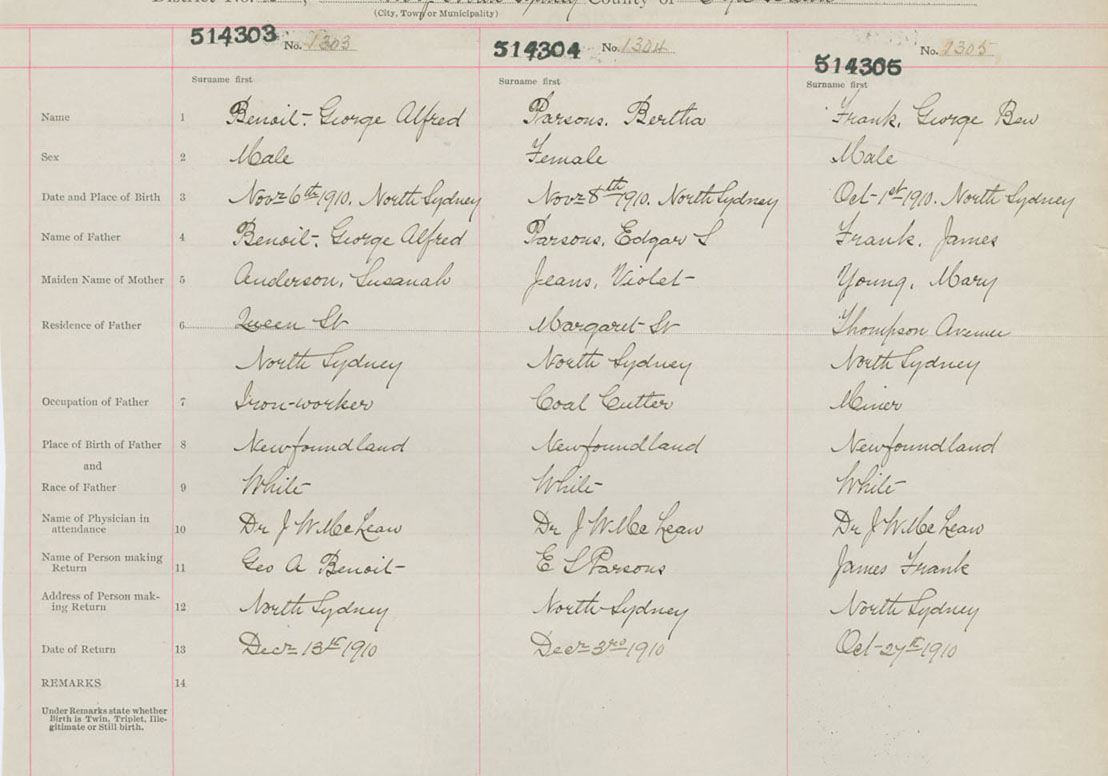 North Sydney County of Cape Breton
(City, Town or Municipality)
514303 No. 1303 514304 No. 1304 514305 No. 1305
Surname first Surname first Surname first
Name 1 Benoit, George Alfred Parsons, Bertha Frank, George Ben
Sex 2 Male Female Male
Date and Place of Birth 3 Novr 6th 1910, North Sydney Novr 8th 1910, North Sydney Oct 1st 1910, North Sydney
Name of Father 4 Benoit, George Alfred Parsons, Edgar S Frank, James
Maiden Name of Mother 5 Anderson, Susanah Jeans, Violet Young, Mary
Residence of Father 6 Queen St Margaret St Thompson Avenue
North Sydney North Sydney North Sydney
Occupation of Father 7 Iron-worker Coal Cutter Miner
Place of Birth of Father 8 Newfoundland Newfoundland Newfoundland
and
Race of Father 9 White White White
Name of Physician in
attendance 10 Dr J W McLean Dr J W McLean Dr J W McLean
Name of Person making
Return 11 Geo A Benoit E S Parsons James Frank
Address of Person mak-
ing Return 12 North Sydney North Sydney North Sydney
Date of Return 13 Decr 13th 1910 Decr 3rd 1910 Oct 27th 1910
REMARKS 14
Under Remarks state whether
Birth is Twin, Triplet, Ille-
gitimate or Still birth.